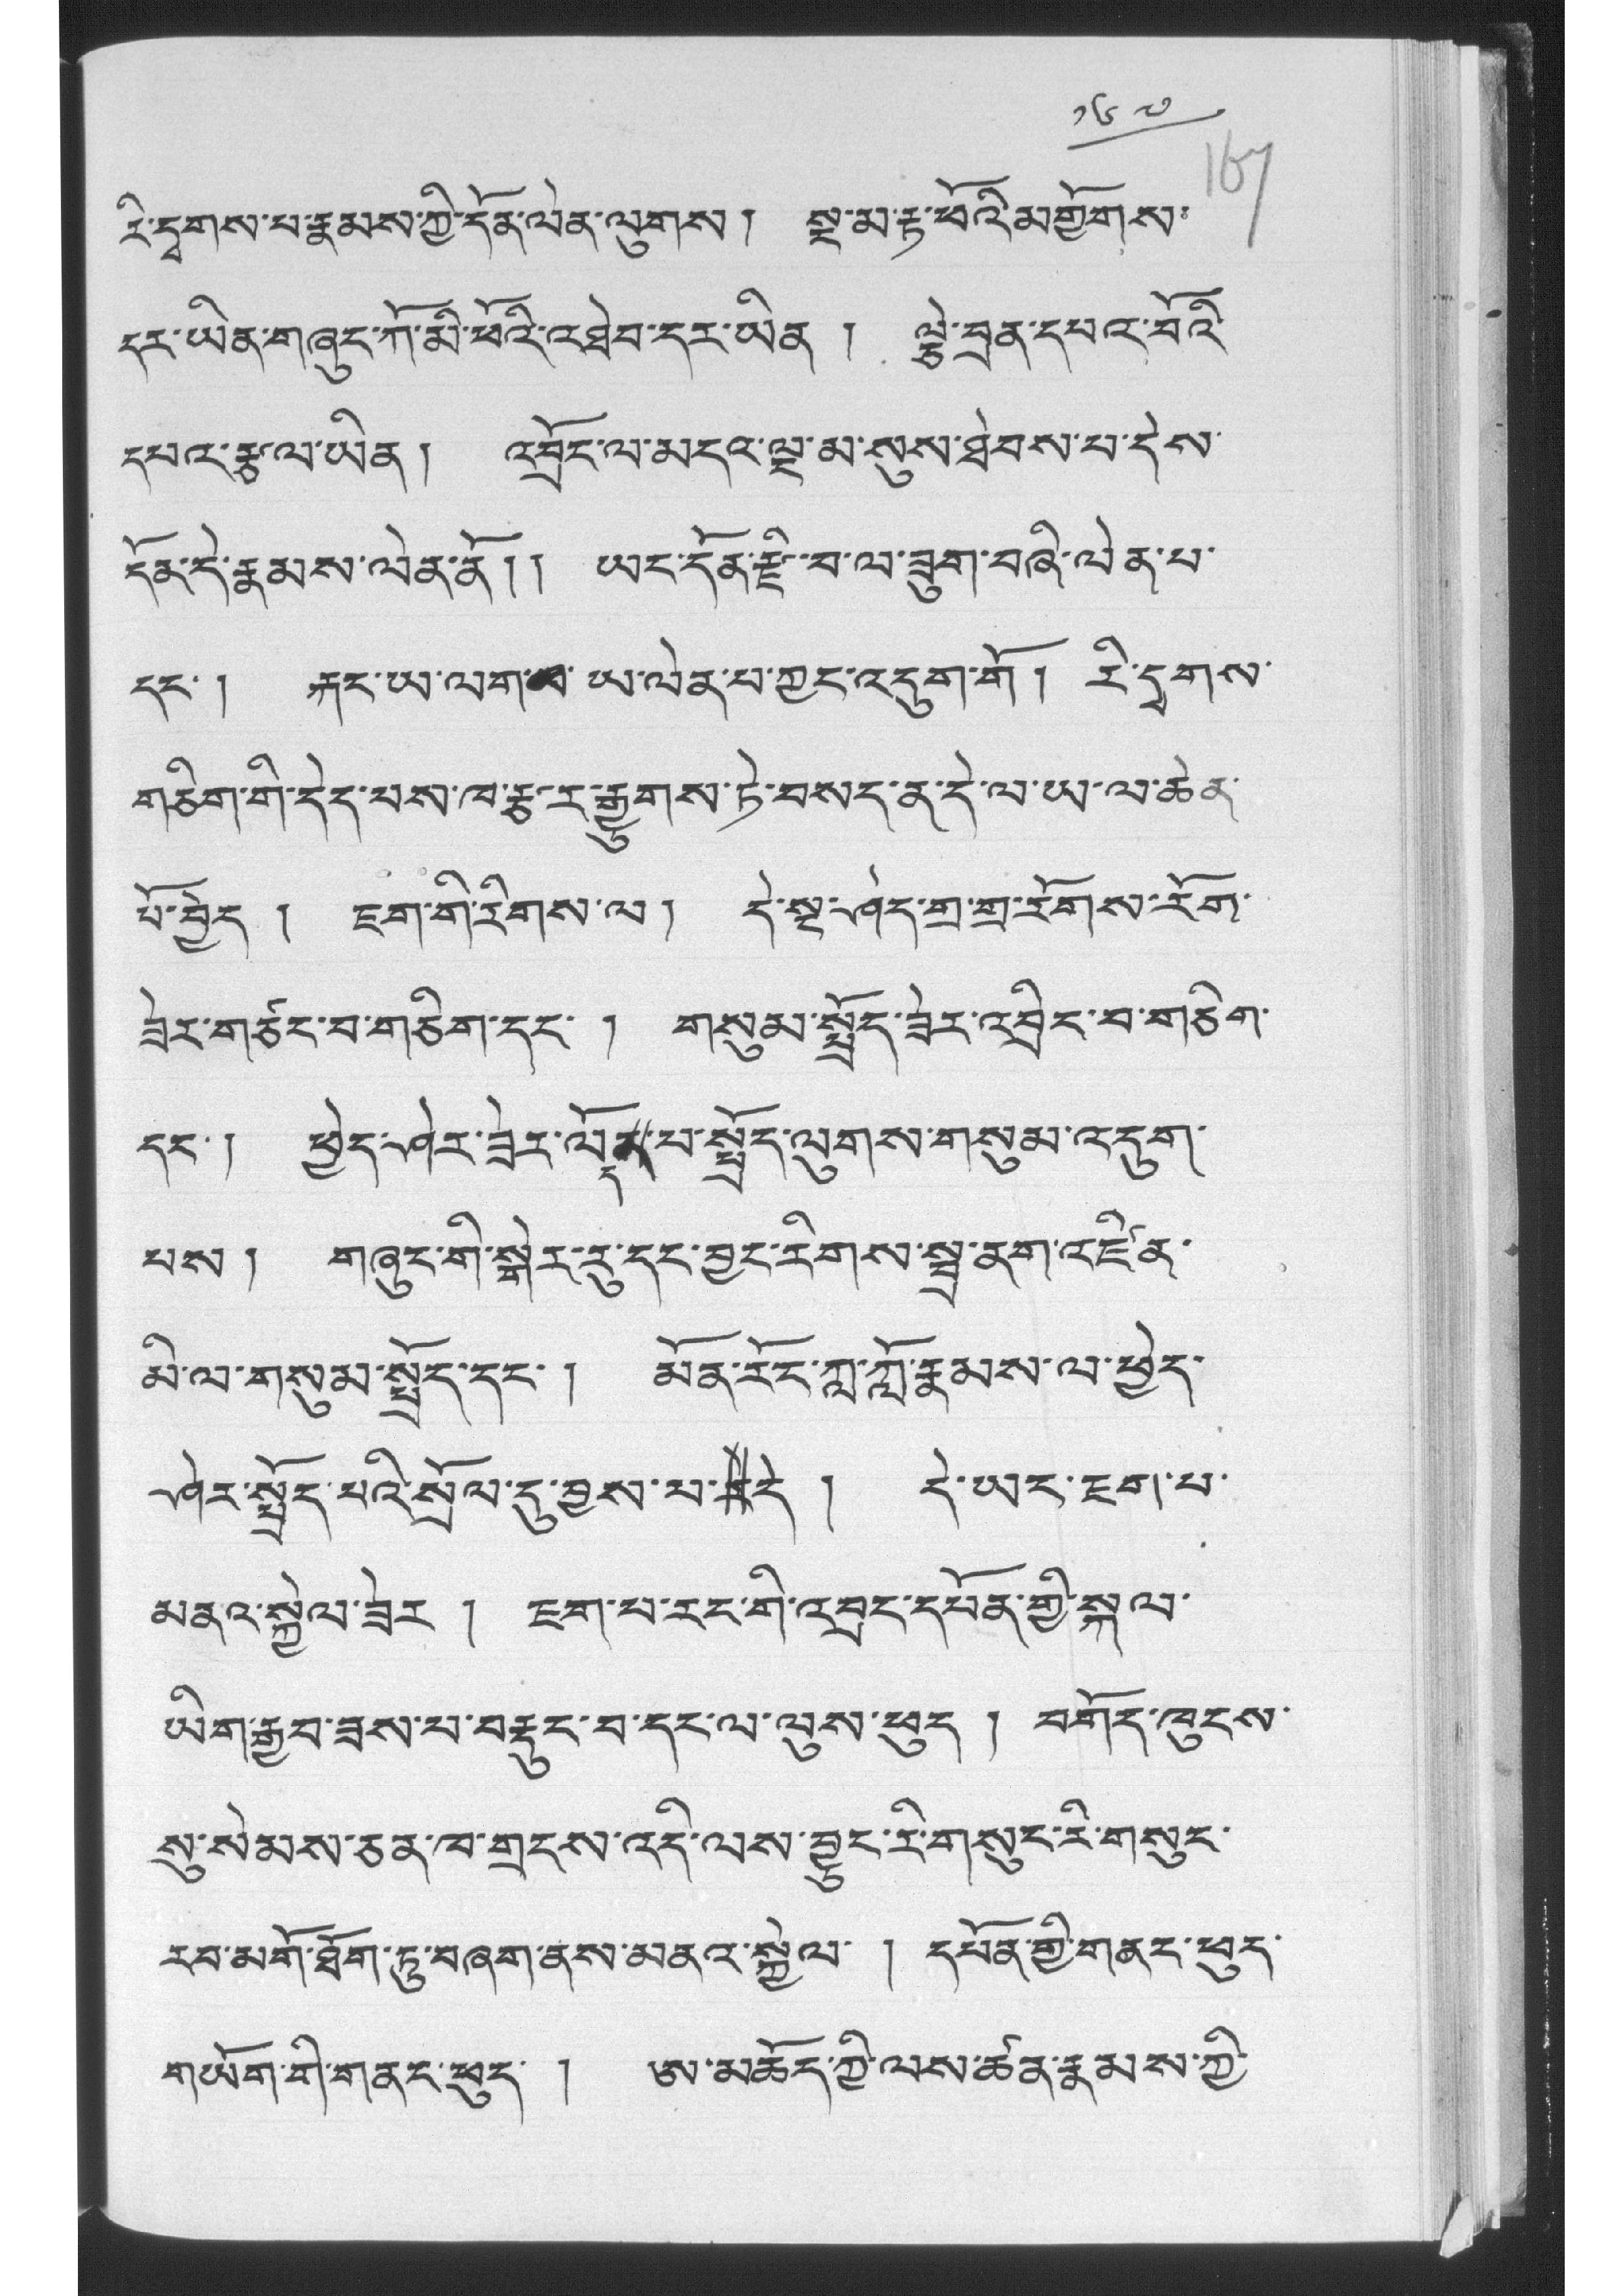 ༡༦༧
167
རི་དྭགས་པ་རྣམས་ཀྱི་དོན་ལེན་ལུགས། སྔ་མ་རྟ་ཕོའི་མགྱོགས་
དར་ཡིན་གཞུང་ཀོ་མི་ཕོའི་འཐེབ་དར་ཡིན། ལྕེ་བྲན་དཔའ་བོའི་
དཔའ་རྩལ་ཡིན། འབྲོང་ལ་མདའ་སྔ་མ་སུས་ཐེབས་པ་དེས་
དོན་དེ་རྣམས་ལེན་ནོ།། ཡང་དོན་རྫི་བ་ལ་ཟུག་བཞི་ལེན་པ་
དང་། རྐང་ཡ་ལག་ཡ་ལེན་པ་ཀྱང་འདུག་གོ། རི་དྭགས་
གཅིག་གི་དེད་པས་ཁ་རྩར་རྒྱུགས་ཏེ་བསད་ན་དེ་ལ་ཡ་ལ་ཆེན་
པོ་བྱེད། ཇག་གི་རིགས་ལ། དེ་སྔ་ཤེད་གྲ་གྲ་རོགས་རོག་
ཟེར་གཙང་བ་གཅིག་དང་། གསུམ་སྤྲོད་ཟེར་འབྲིང་བ་གཅིག་
དང་། ཕྱེད་ཤེར་ཟེར་ལོད་པ་སྤྲོད་ལུགས་གསུམ་འདུག་
པས། གཞུང་གི་སྒེར་རུ་དང་བྱང་རིགས་སྦྲ་ནག་འཛིན་
མི་ལ་གསུམ་སྤྲོད་དང་། མོན་རོང་ཀླ་ཀློ་རྣམས་ལ་ཕྱེད་
ཤེར་སྤྲོད་པའི་སྲོལ་དུ་བྱས་པ་དེ། དེ་ཡང་ཇག་པ་
མནའ་སྐྱེལ་ཟེར། ཇག་པ་རང་གི་འབྲང་དཔོན་གྱི་སྐལ་
ཡིག་རྒྱབ་ཟས་པ་བརྡུང་བ་དང་ལ་ལུས་ཕུད། བགོད་ཁུངས་
སུ་སེམས་ཅན་ཁ་གྲངས་འདི་ལས་བྱུང་རི་གསུང་རི་གསུང་
རབ་མགོ་ཐོག་ཏུ་བཞག་ནས་མནའ་སྐྱེལ། དཔོན་གྱི་གནང་ཕུད་
གཡོག་གི་གནང་ཕུད། ཨ་མཆོད་ཀྱི་ལས་ཚན་རྣམས་ཀྱི་